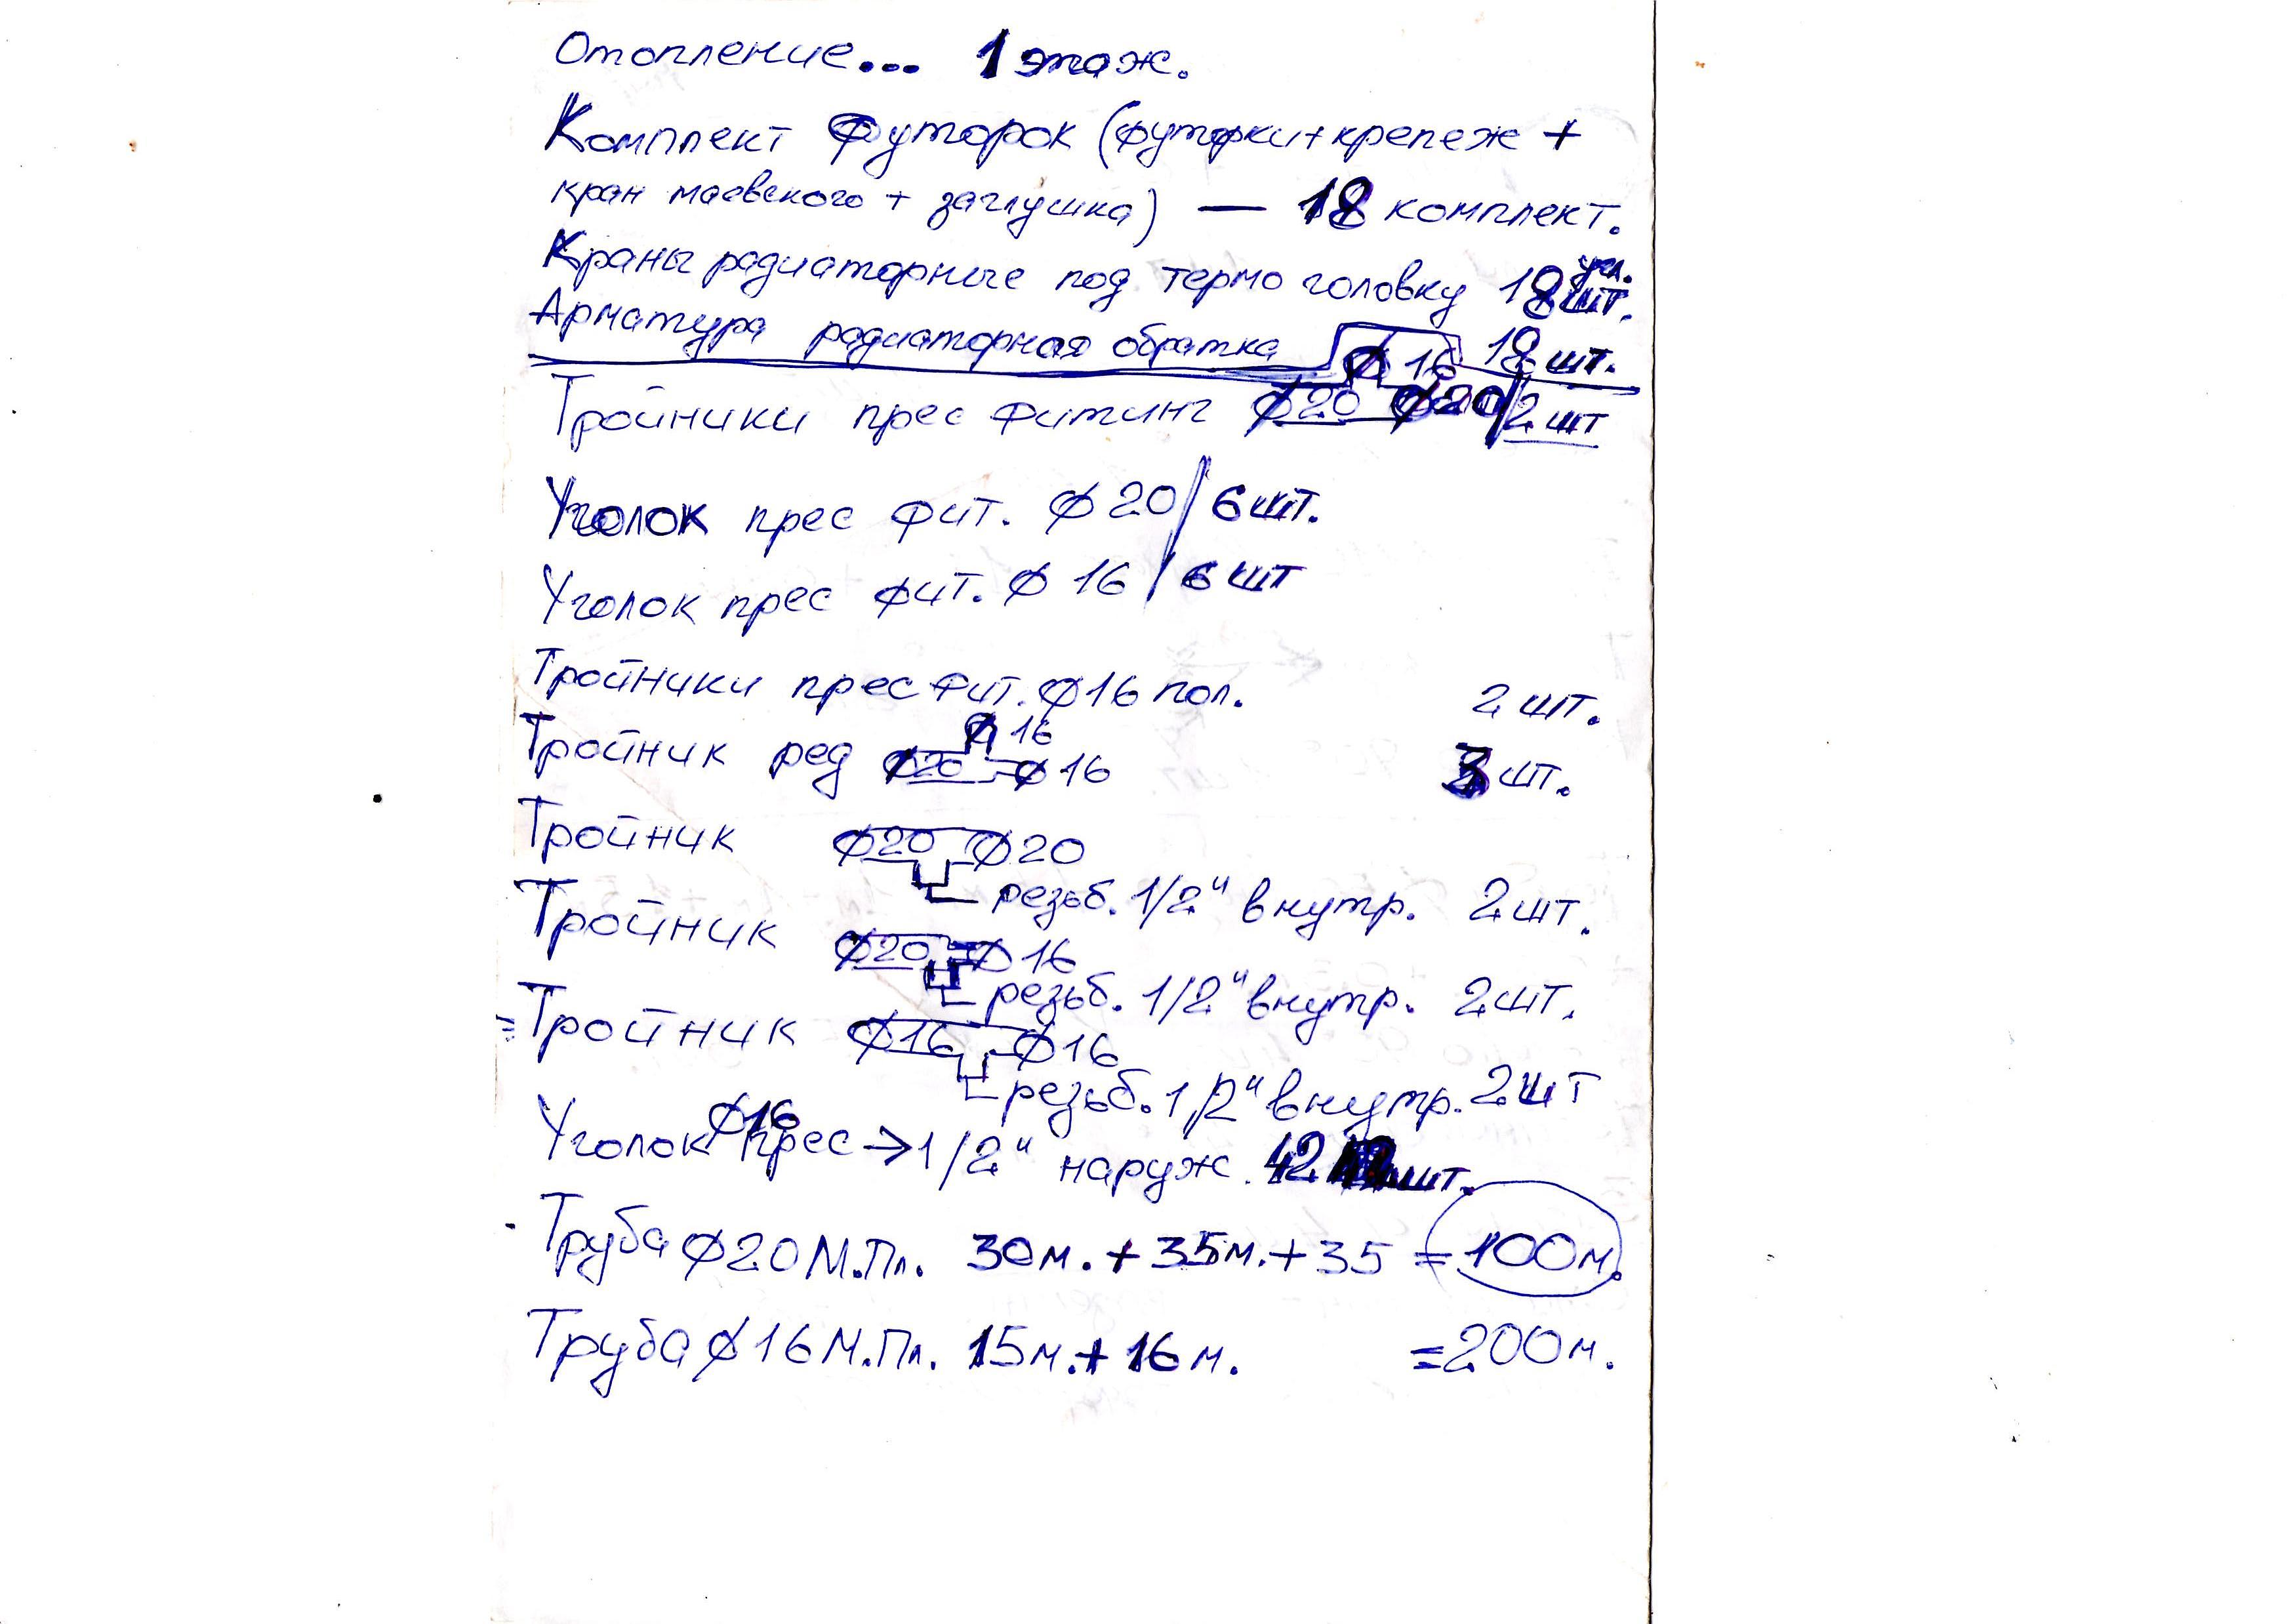 Отопление... 1 этаж.
Комплект Футорок (футорки+крепеж +
кран маевского + заглушка) — 18 комплект.
Краны радиаторные под термо головку 18 шт.
угл.
Арматура радиаторная обратка 18 шт.
ф 16
Тройники прес фитинг ф20 ф20/2 шт
Уголок прес фит. ф 20/6 шт.
Уголок прес фит. ф 16/6 шт
Тройники прес фит. ф16 пол. 2 шт.
ф 16
Тройник ред ф20 ф 16 3 шт.
Тройник ф20 ф20
резьб. 1/2" внутр. 2шт.
Тройник ф20 ф 16
резьб. 1/2" внутр. 2шт.
Тройник ф16 ф16
резьб. 1/2" внутр. 2шт
ф16
Уголок прес → 1/2" наруж. 42 шт.
Труба ф20 М.Пл. 30м. + 35м. + 35 = 100м.
Труба ф16 М.Пл. 15м. + 16 м. =200м.